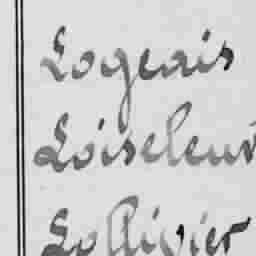 Logeais
Loiseleur
Lollivier